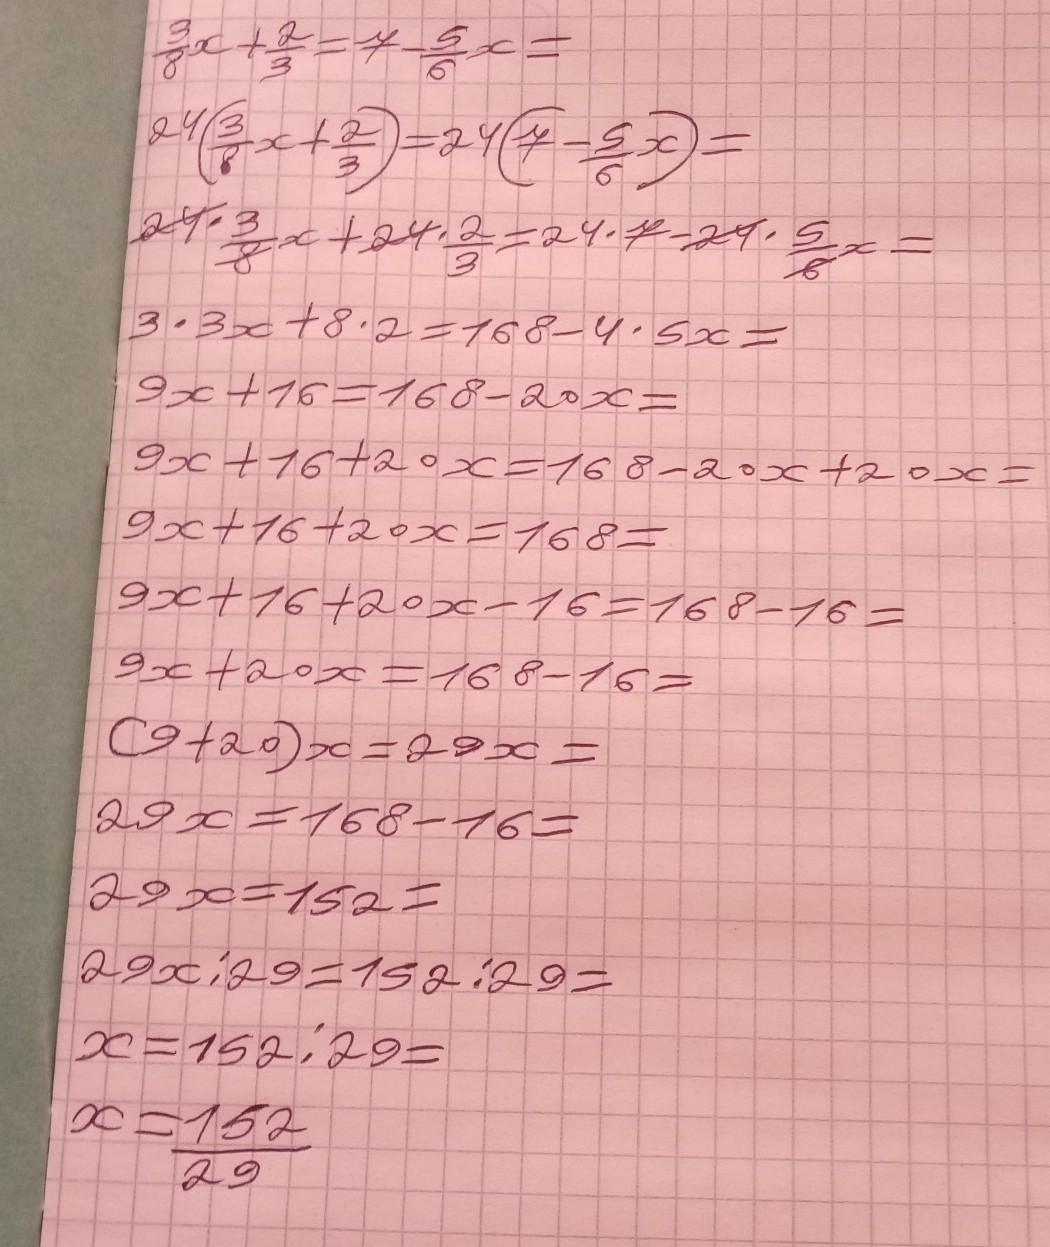 3/8x+2/3=7-5/6x=
24(3/8x+2/3)=24(7-5/6x)=
24·3/8x+24·2/3=24·7-24·5/6x=
3·3x+8·2=168-4·5x=
9x+16=168-20x=
9x+16+20x=168-20x+20x=
9x+16+20x=168=
9x+16+20x-16=168-16=
9x+20x=168-16=
(9+20)x=29x=
29x=168-16=
29x=152=
29x:29=152:29=
x=152:29=
x=152/29